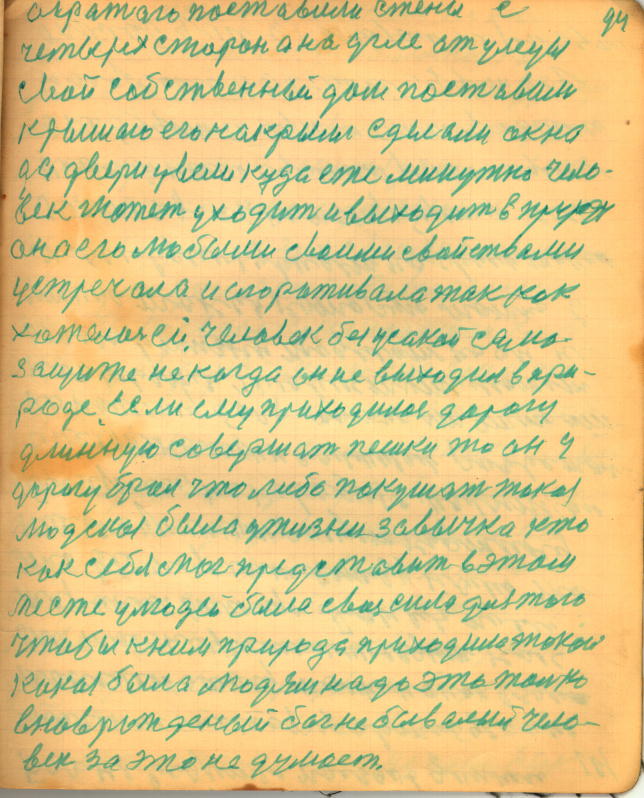 94
обратого поставили стены с
четверх сторон а на дгле от улецы
свой собственный дом поставили
крышаю его накрыли сделали окно
да двери ввели куда еже минутно чело-
век может уходит и выходить в природу
она его любыми своими свойствами
устречала и спроживала так как
хотелось ей, человек без усякой само-
защите не когда он не выходил в при-
роде, Если ему приходилос дорогу
длинную совершат пешки то он у
дорогу брал что либо покушат такая
людская была у жизни завычка хто
как себя мог представит в этом
месте у людей была своя сила для того
чтобы к ним природа приходила такой
какая была людям надо это только
вновврожденый бог не бывалый чело-
век за это не думает.